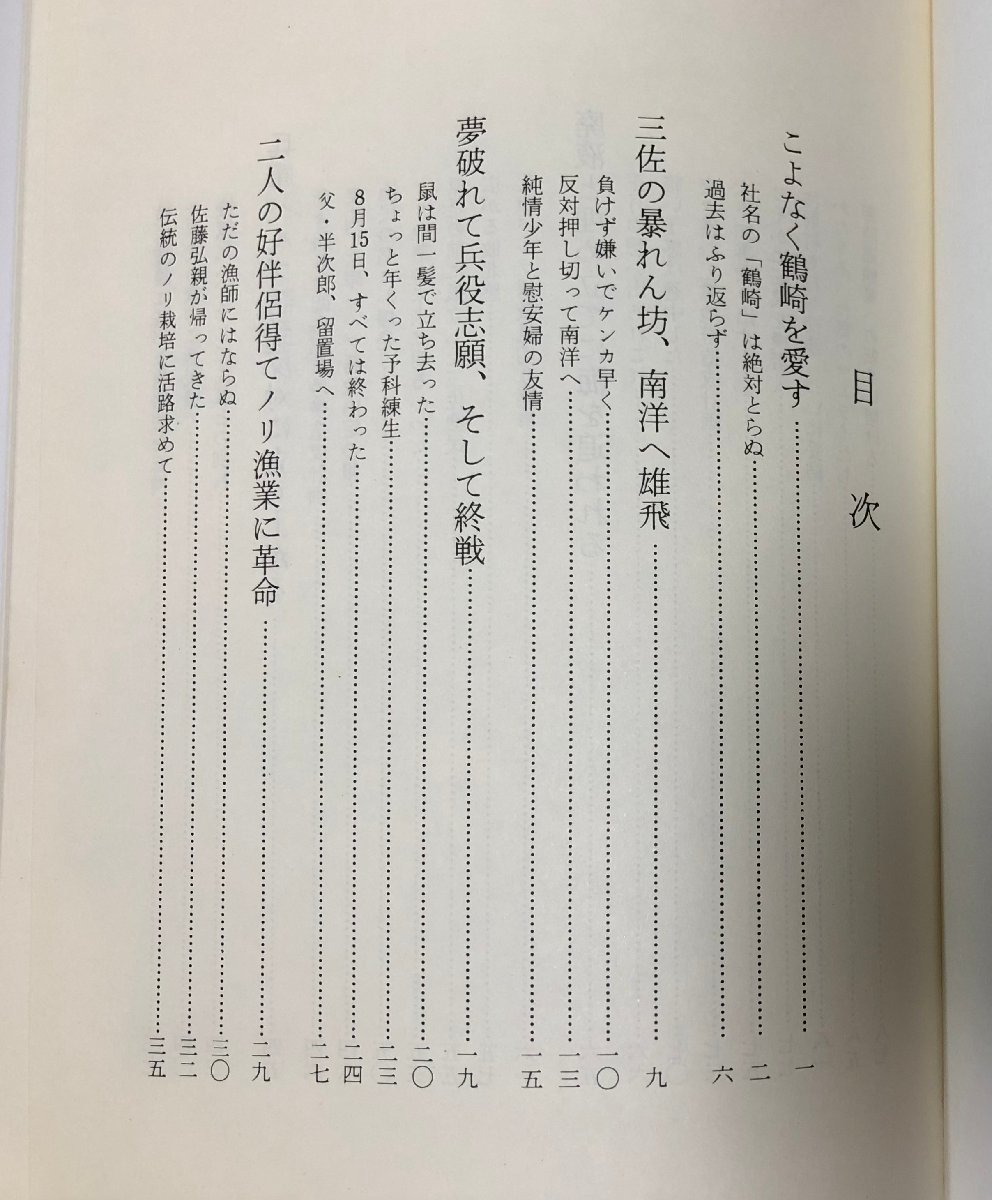 目次
こよなく鶴崎を愛す……………一
社名の「鶴崎」は絶対とらぬ……………二
過去はふり返らず……………六
三佐の暴れん坊、南洋へ雄飛……………九
負けず嫌いでケンカ早く……………一〇
反対押し切って南洋へ……………一三
純情少年と慰安婦の友情……………一五
夢破れて兵役志願、そして終戦……………一九
鼠は間一髪で立ち去った……………二〇
ちょっと年くった予科練生……………二三
8月15日、すべては終わった……………二四
父・半次郎、留置場へ……………二七
二人の好伴侶得てノリ漁業に革命……………二九
ただの漁師にはならぬ……………三〇
佐藤弘親が帰ってきた……………三二
伝統のノリ栽培に活路求めて……………三五